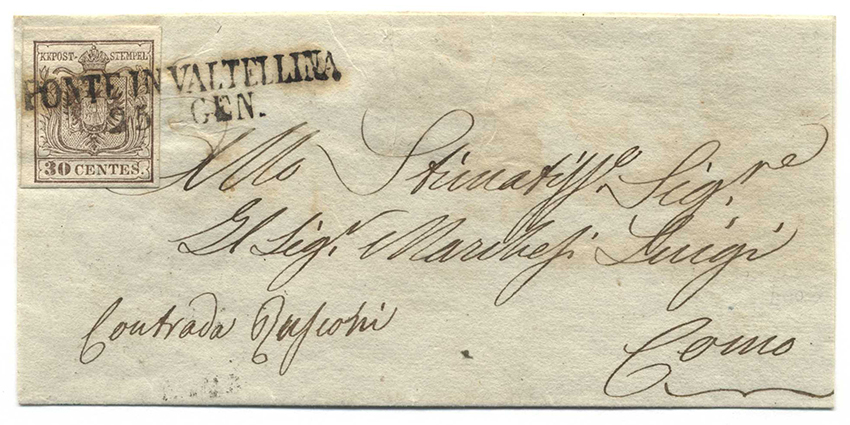 KKPOST-STEMPEL
PONTE IN VALTELLINA
25 GEN.
30 CENTES.
Allo Stimatiss.o Sig.re
Il Sig.r Luigi
Contrada Rusconi
Como